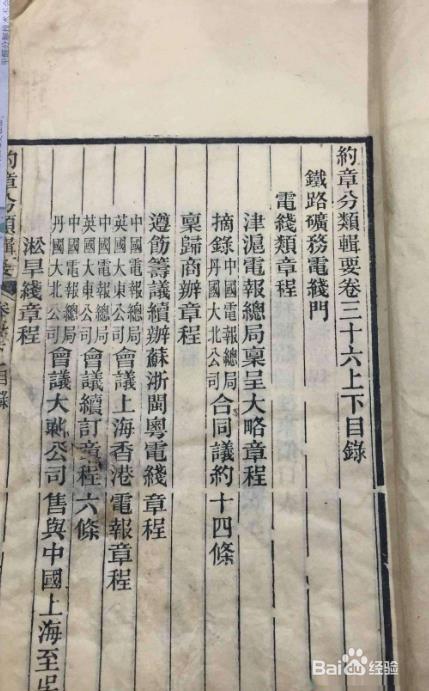 約章分類輯要卷三十六上下目錄
鐵路礦務電綫門
電綫類章程
津滬電報總局稟呈大略章程
摘錄中國電報總局丹國大北公司合同議約十四條
稟歸商辦章程
遵飭籌議續辦蘇浙閩粵電綫章程
中國電報總局英國大東公司會議上海香港電報章程
中國電報總局英國大東公司會議續訂章程六條
中國電報總局丹國大北公司會議大北公司售與中國上海至吳
淞旱綫章程
約章分類輯要
目錄
Bai 百度经验